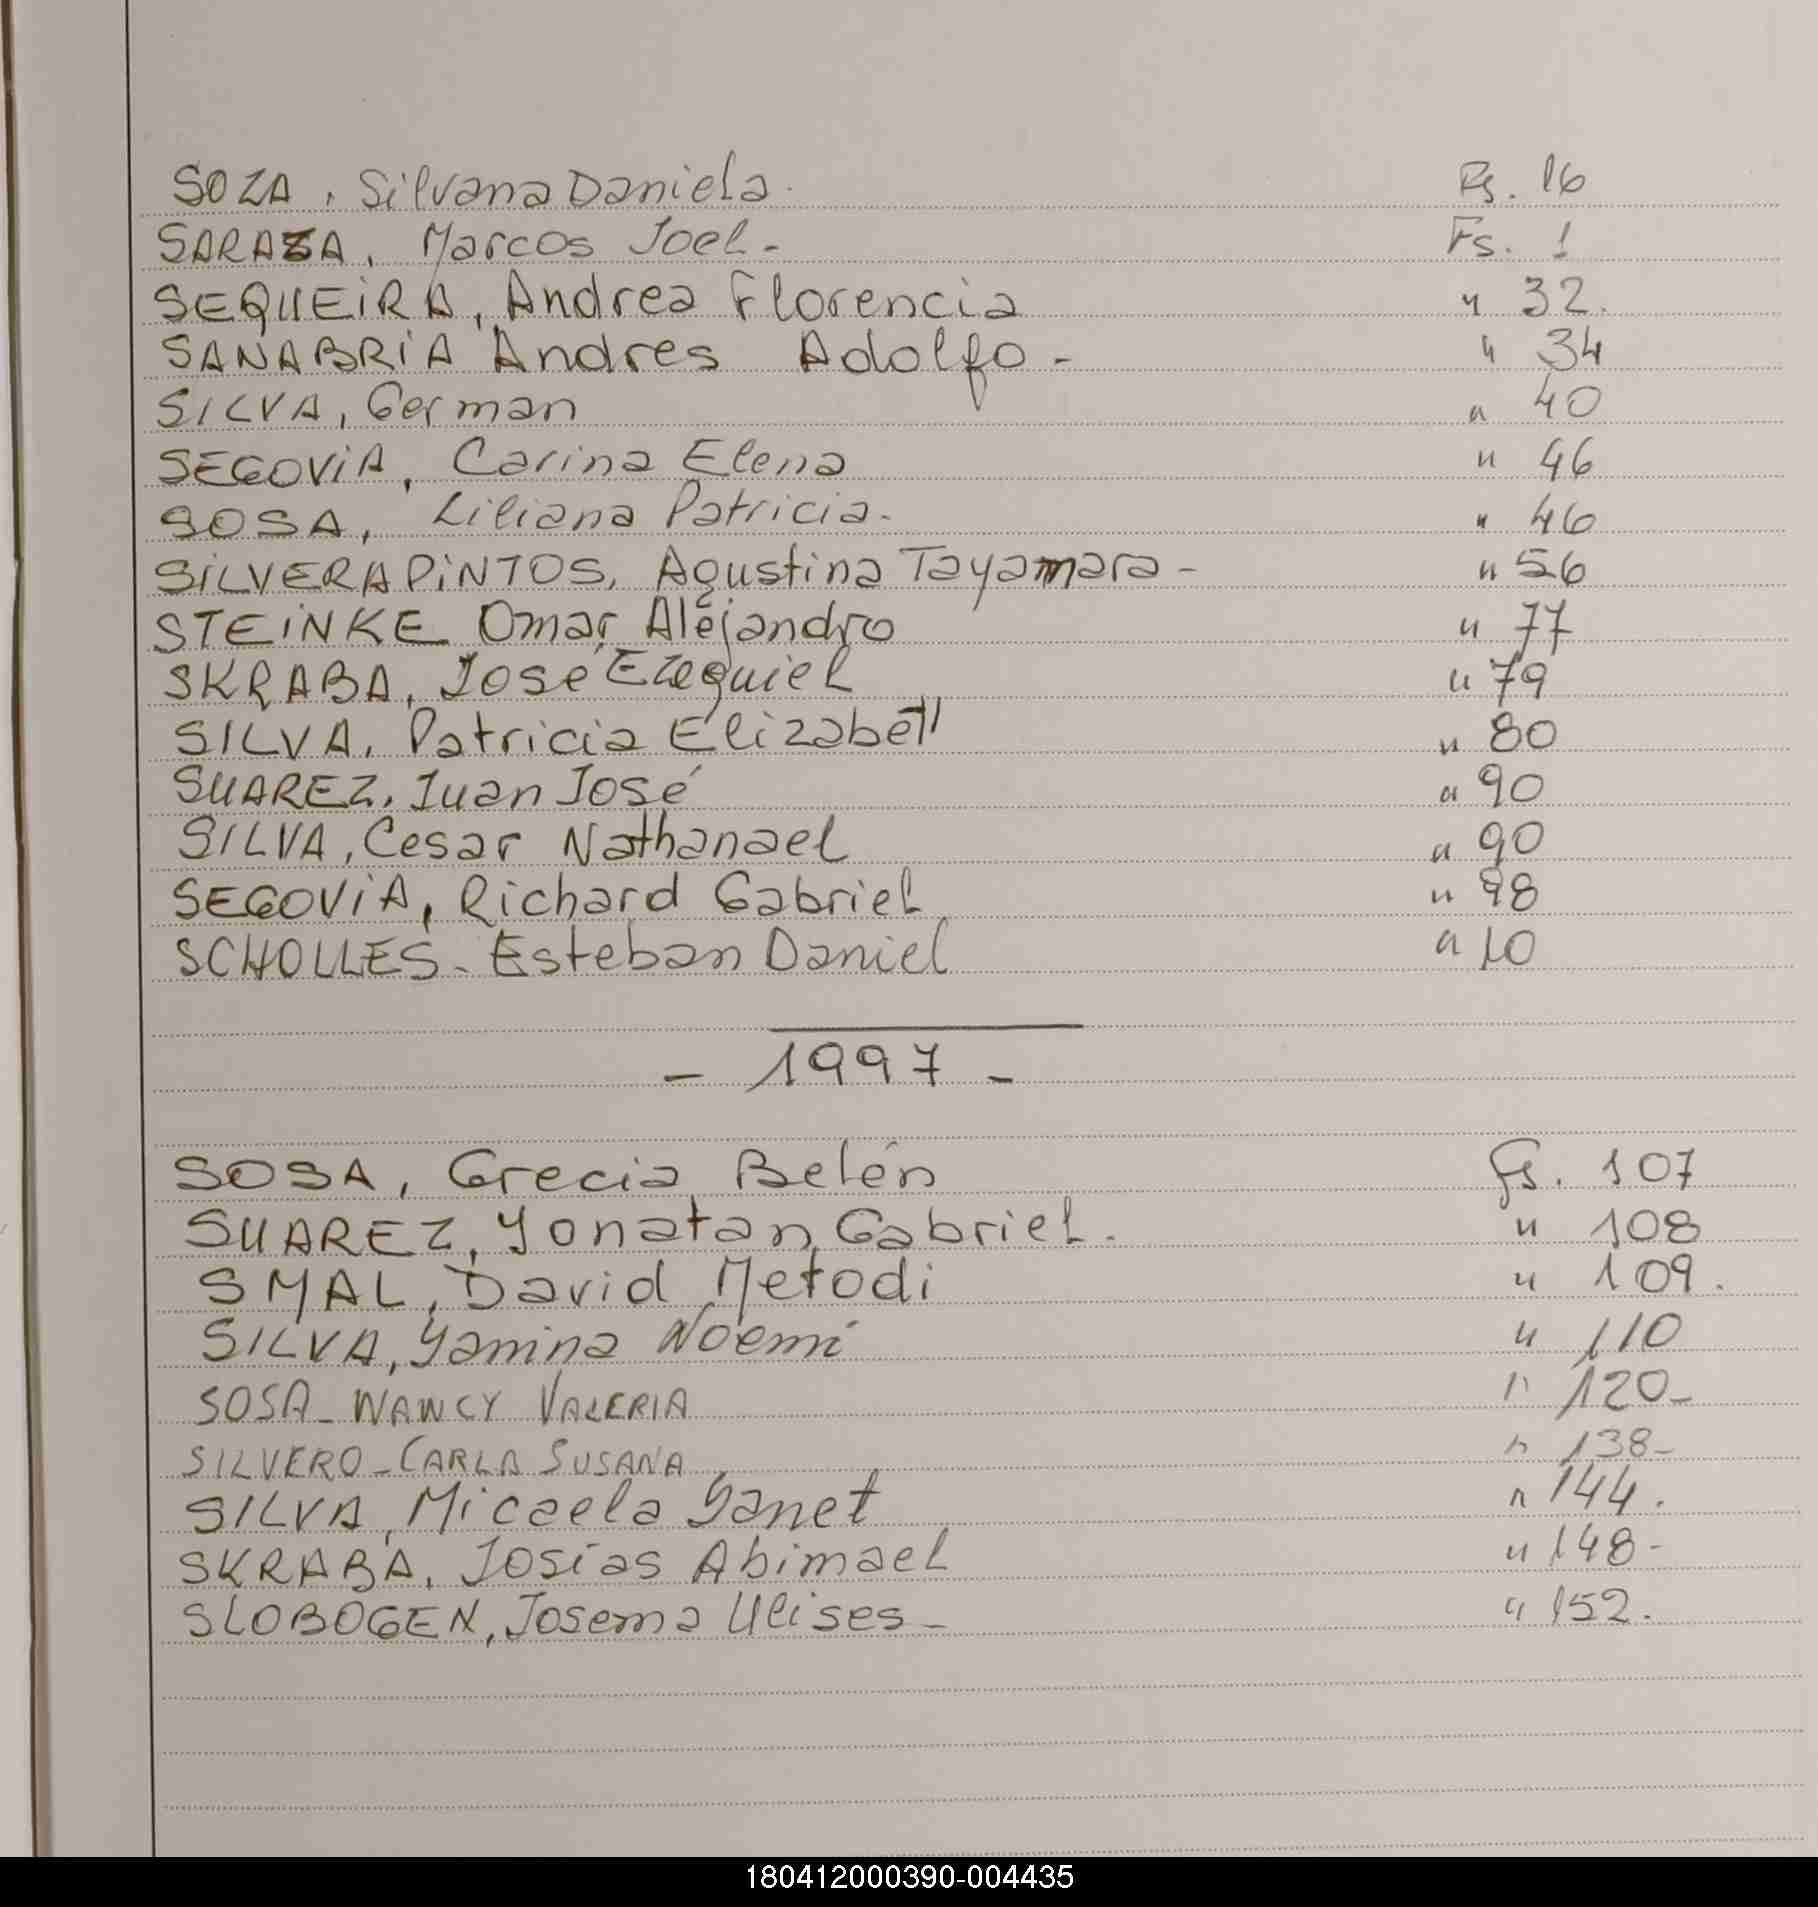 SOZA, Silvana Daniela. Fs. 16
SARAZA, Marcos Joel- Fs. 1
SEQUEIRA, Andrea Florencia " 32.
SANABRIA Andres Adolfo- " 34
SILVA, German " 40
SEGOVIA, Carina Elena " 46
SOSA, Liliana Patricia- " 46
SILVERA PINTOS, Agustina Tayamara- " 56
STEINKE Omar Alejandro " 77
SKRABA, José Ezequiel " 79
SILVA, Patricia Elizabett " 80
SUAREZ, Juan José " 90
SILVA, Cesar Nathanael " 90
SEGOVIA, Richard Gabriel " 98
SCHOLLES- Esteban Daniel " 10
- 1997 -
SOSA, Grecia Belén fs. 107
SUAREZ, Yonatan Gabriel. " 108
SMAL, David Metodi " 109.
SILVA, Yanina Noemí " 110
SOSA- NANCY VALERIA " 120-
SILVERO- CARLA SUSANA " 138-
SILVA, Micaela Yanet " 144.
SKRABA, Josías Abimael " 148-
SLOBOGEN, Josema Ulises- " 152.
180412000390-004435